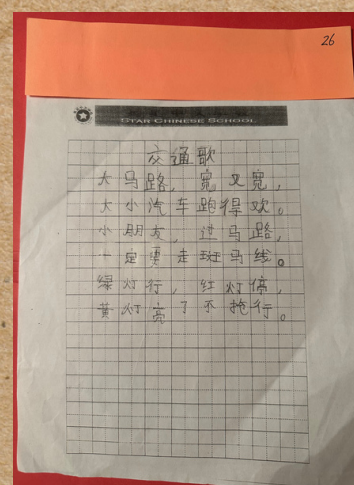 26
STAR CHINESE SCHOOL
交通歌
大马路，宽又宽，
大小汽车跑得欢。
小朋友，过马路，
一定要走斑马线。
绿灯行，红灯停，
黄灯亮了不抢行。